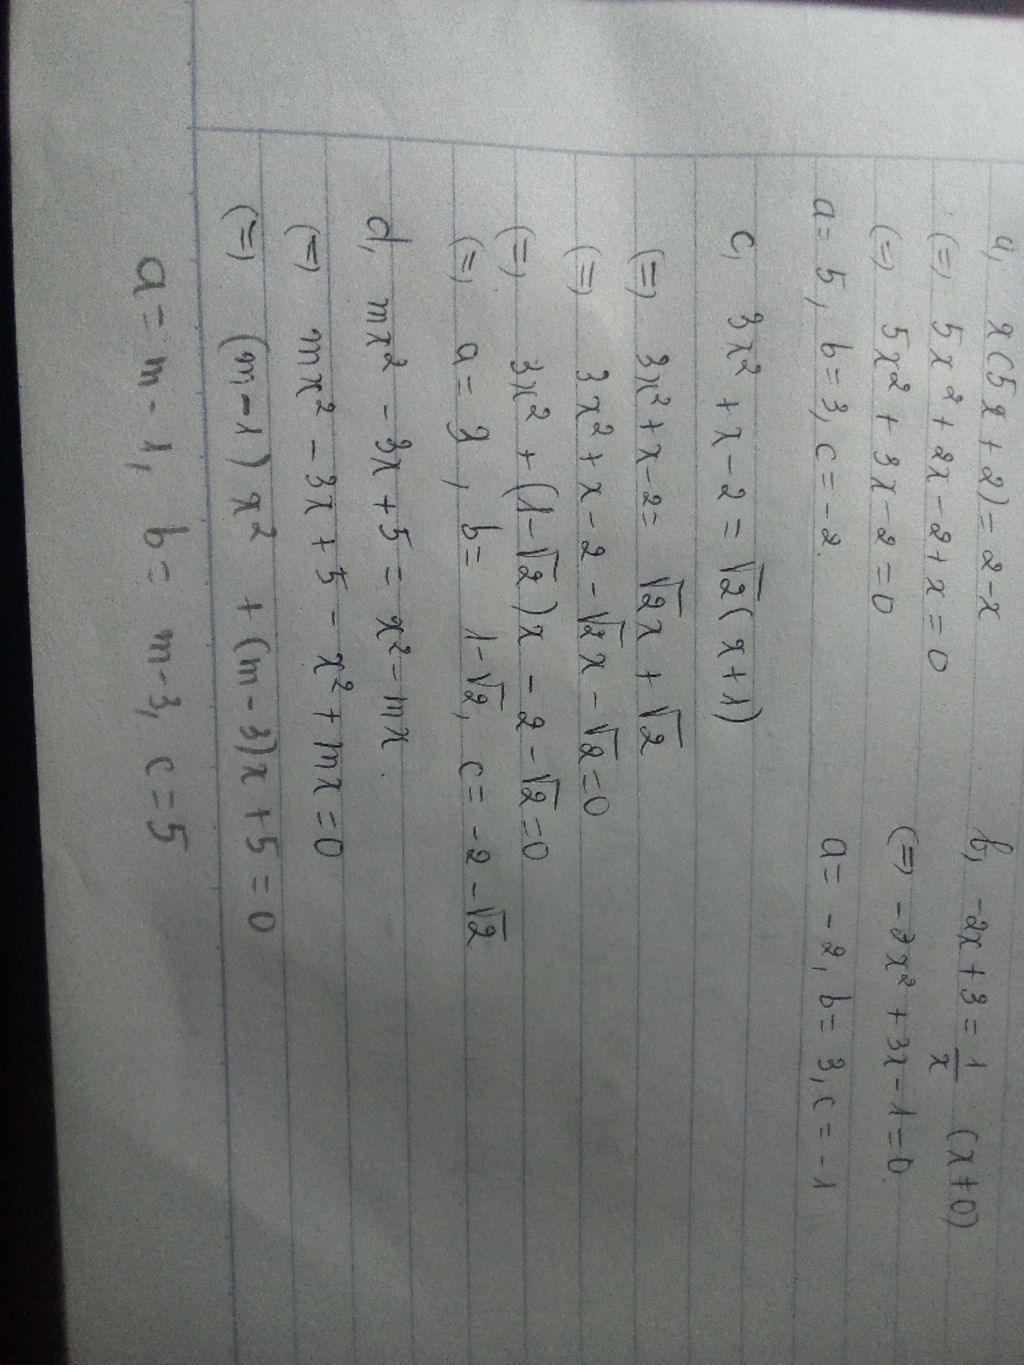 a, x(5x+2) = 2-x
(=) 5x² + 2x - 2 + x = 0
(=) 5x² + 3x - 2 = 0
a = 5, b = 3, c = -2.
b, -2x + 3 = 1/x (x≠0)
(=) -2x² + 3x - 1 = 0
a = -2, b = 3, c = -1
c, 3x² + x - 2 = √2(x+1)
(=) 3x² + x - 2 = √2x + √2
(=) 3x² + x - 2 - √2x - √2 = 0
(=) 3x² + (1-√2)x - 2 - √2 = 0
(=) a = 3, b = 1-√2, c = -2-√2
d, mx² - 3x + 5 = x² - mx.
(=) mx² - 3x + 5 - x² + mx = 0
(=) (m-1)x² + (m-3)x + 5 = 0
a = m-1, b = m-3, c = 5